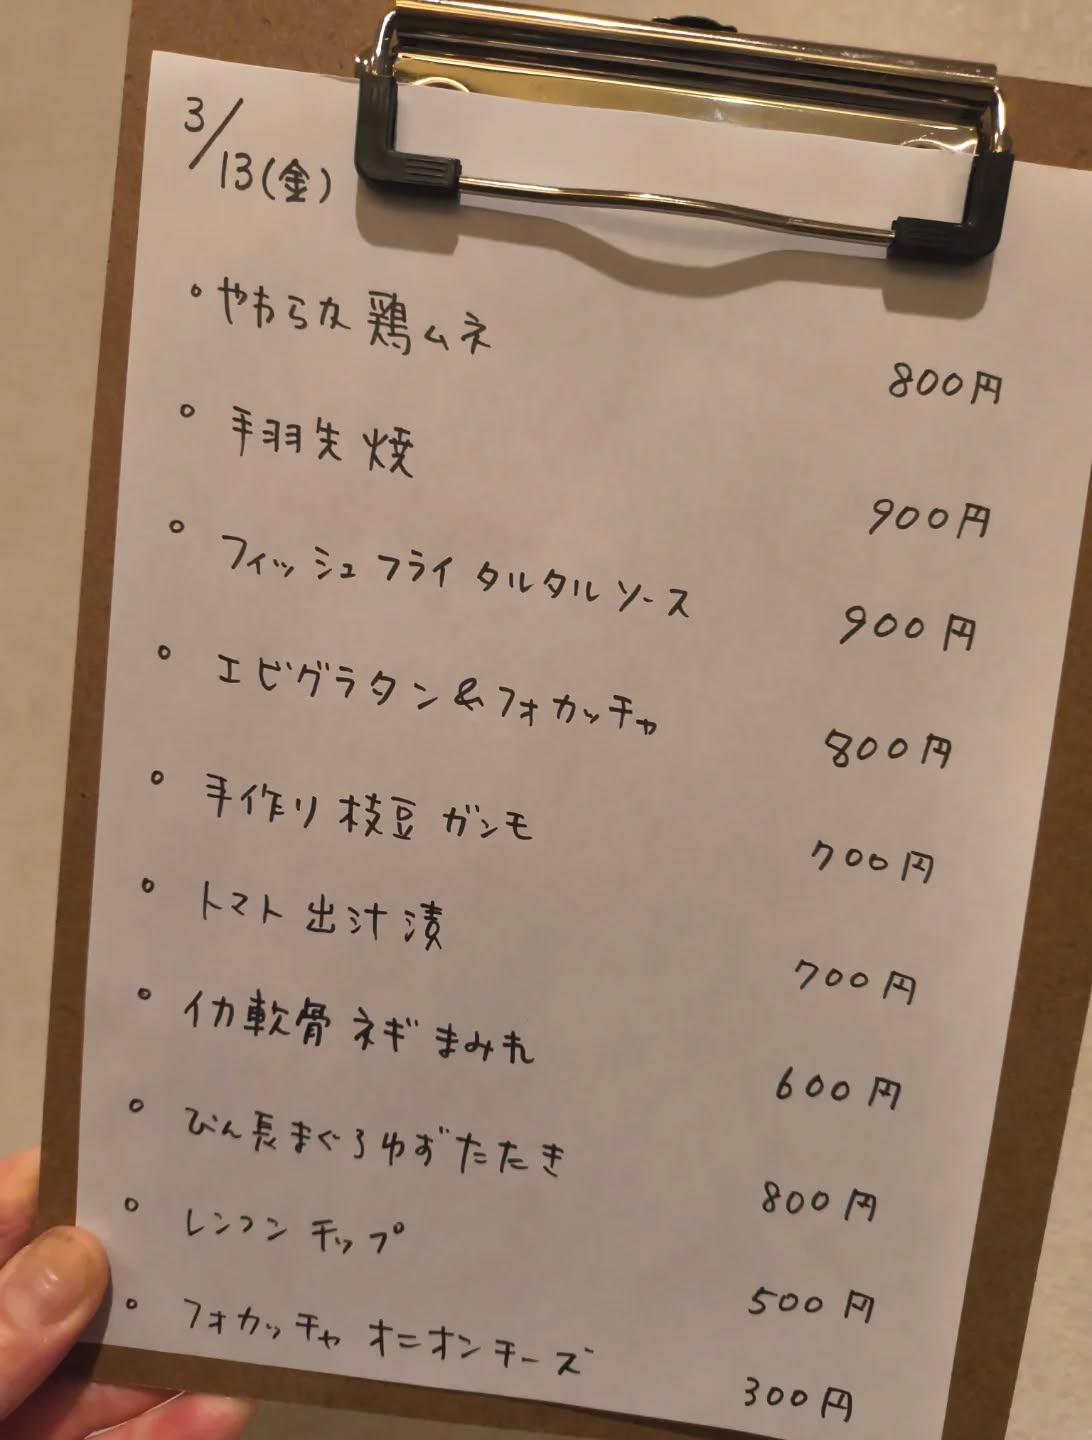 3/13(金)
・やわらか鶏ムネ 800円
・手羽先焼 900円
・フィッシュフライ タルタルソース 900円
・エビグラタン&フォカッチャ 800円
・手作り枝豆ガンモ 700円
・トマト出汁漬 700円
・イカ軟骨ネギまみれ 600円
・びん長まぐろゆずたたき 800円
・レンコンチップ 500円
・フォカッチャ オニオンチーズ 300円